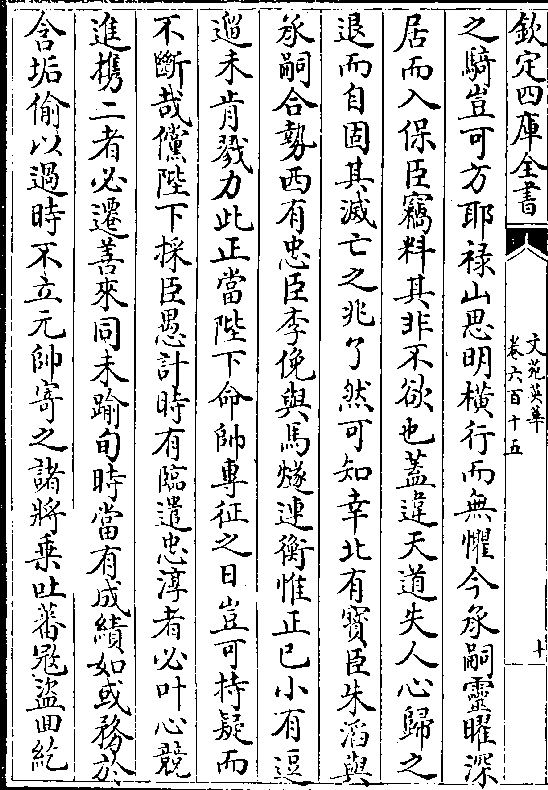 欽定四庫全書
文苑英華
卷六百十五
十
之騎豈可方耶祿山思明橫行而無懼今承嗣靈曜深
居而入保臣竊料其非不欲也蓋違天道失人心歸之
退而自固其滅亡之兆了然可知幸北有寳臣朱滔與
承嗣合勢西有忠臣李俛與馬燧連衡惟正已小有逗
遛未肯戮力此正當陛下命帥專征之日豈可持疑而
不斷哉儻陛下採臣愚計時有臨遣忠淳者必叶心競
進携二者必遷善來同未踰旬時當有成績如或務於
含垢偷以過時不立元帥寄之諸將乗吐蕃冦盜回紇